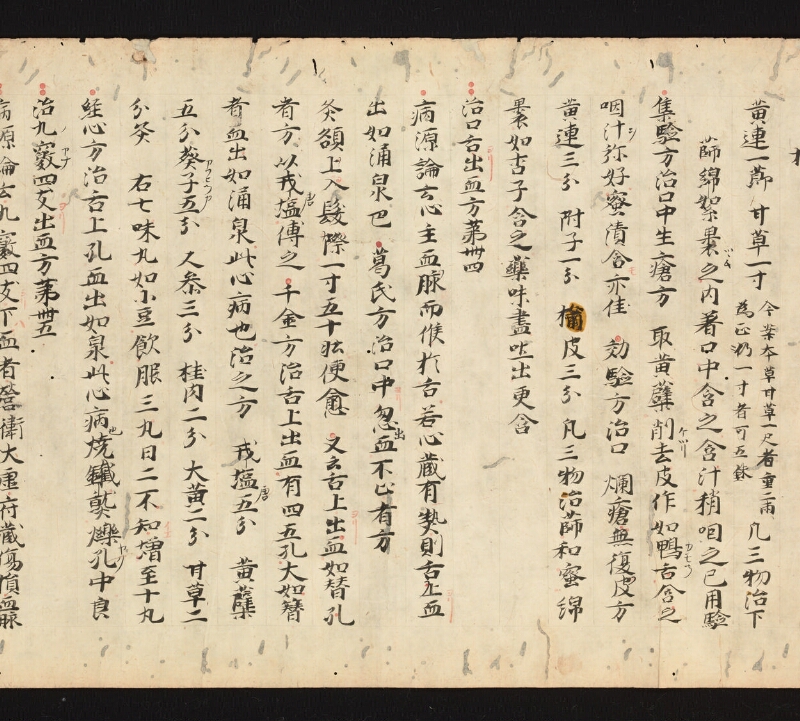 黄連一兩 甘草一寸 今案本草甘草一尺者重二兩為正 凡三物治下
篩綿絮裹之内著口中含之含汁稍咽之已用驗
集驗方治口中生瘡方 取黄蘖削去皮作如鴨舌含之
咽汁弥好蜜漬含亦佳 効驗方治口 爛瘡無復皮方
黄連三分 附子一分 橘皮三分 凡三物治篩和蜜綿
裹如吉子含之藥味盡吐出更含
治口舌出血方第卅四
病源論云心主血脈而候於舌若心藏有熱則舌上血
出如涌泉 葛氏方治口中忽出血不止者方
灸額上入髮際一寸五十壮便愈 又云舌上出血如簪孔
者方 以戎塩傅之 千金方治舌上出血有四五孔大如簪
者血出如涌泉此心病也治之方 戎塩五分 黄蘖
五分葵子五分 人参三分 桂肉二分 大黄二分 甘草二
分炙 右七味丸如小豆飲服三丸日二不知増至十丸
経心方治舌上孔血出如泉此心病 焼鐵熟爍孔中良
治九竅四支出血方第卅五
病源論云九竅四支下血者營衛大虚府藏傷損血脈